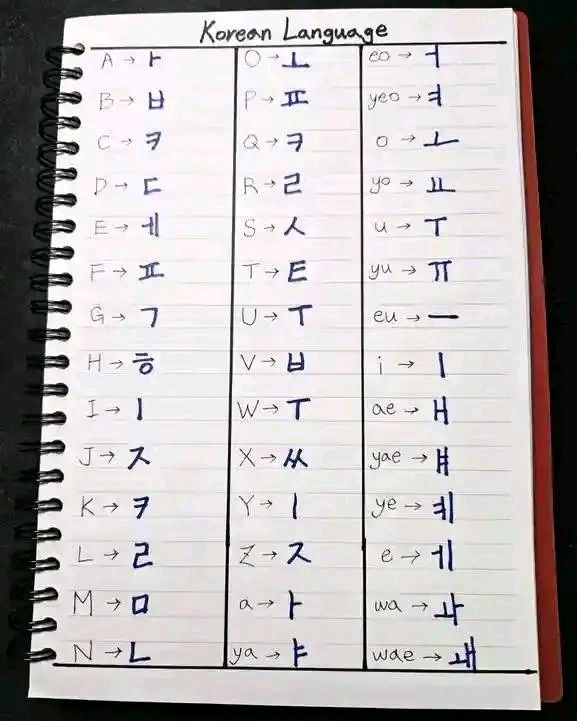 Korean Language
A → ㅏ
B → ㅂ
C → ㅋ
D → ㄷ
E → ㅔ
F → ㅍ
G → ㄱ
H → ㅎ
I → ㅣ
J → ㅈ
K → ㅋ
L → ㄹ
M → ㅁ
N → ㄴ
O → ㅗ
P → ㅍ
Q → ㅋ
R → ㄹ
S → ㅅ
T → ㅌ
U → ㅜ
V → ㅂ
W → ㅜ
X → ㅆ
Y → ㅣ
Z → ㅈ
a → ㅏ
ya → ㅑ
eo → ㅓ
yeo → ㅕ
o → ㅗ
yo → ㅛ
u → ㅜ
yu → ㅠ
eu → ㅡ
i → ㅣ
ae → ㅐ
yae → ㅒ
ye → ㅖ
e → ㅔ
wa → ㅘ
wae → ㅙ